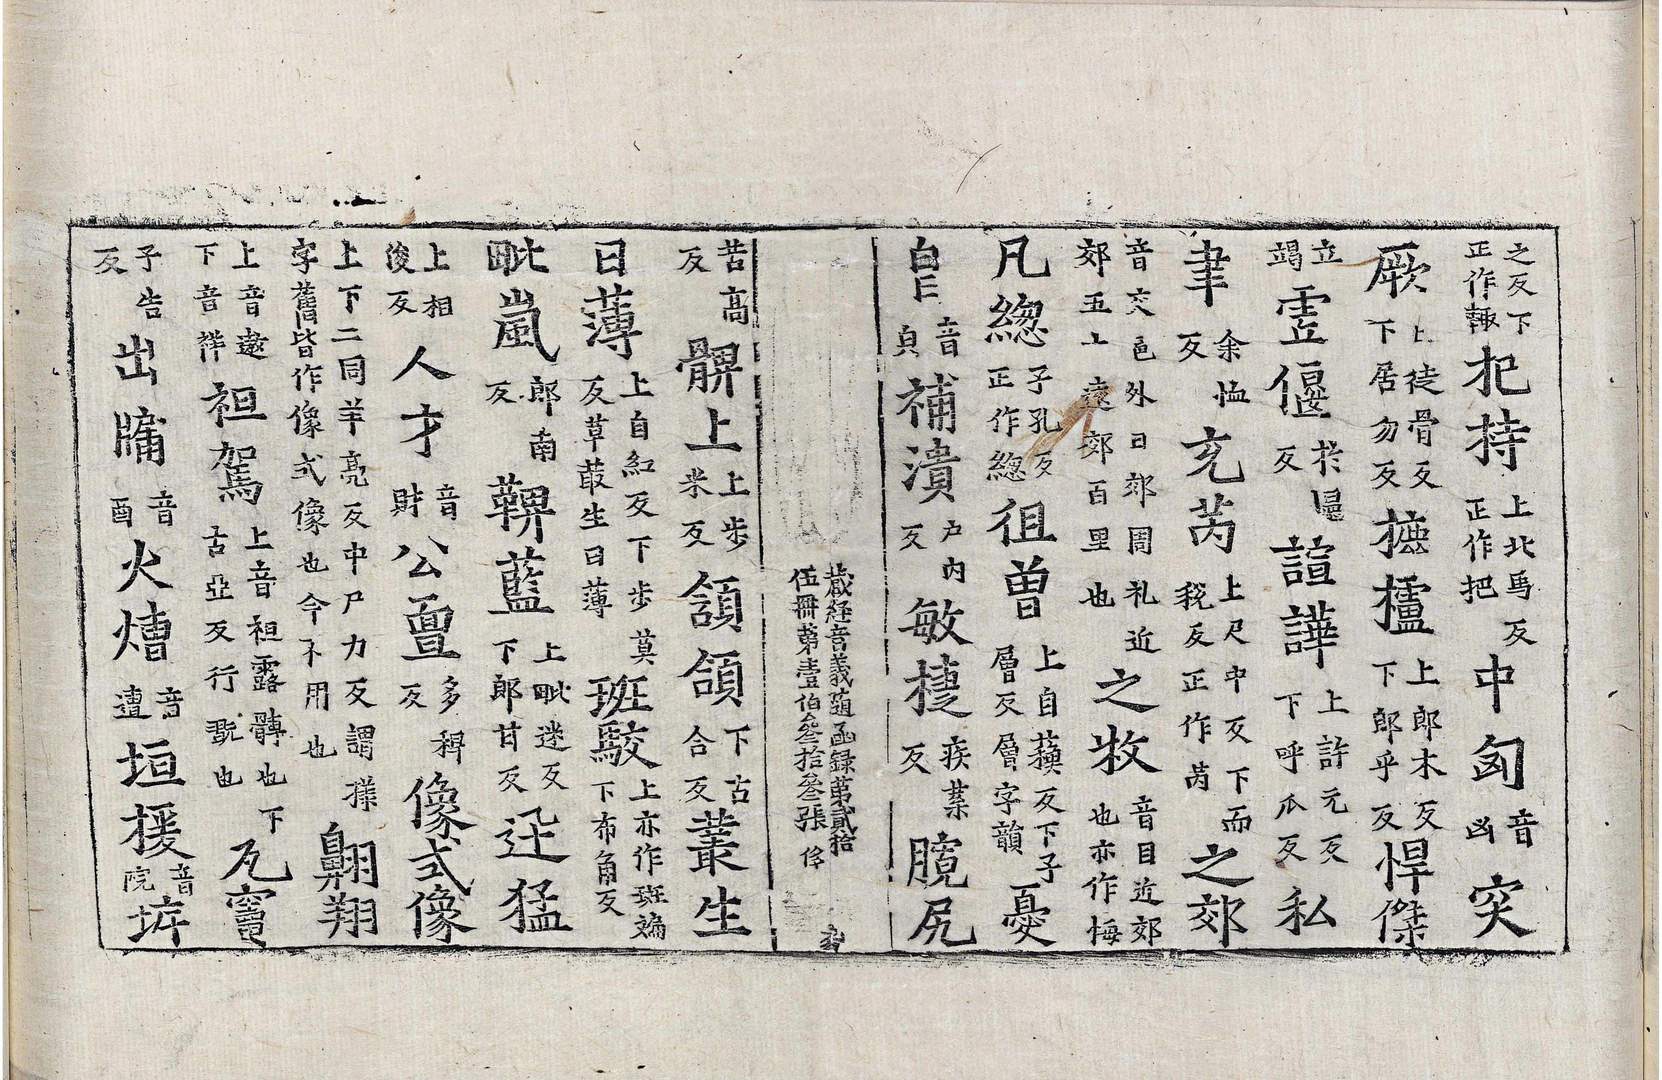 之反下正作𨌺犯持上北馬反正作把中匈音凶突
厥上徒骨反下居勿反摝櫨上郎木反下郎乎反悍傑
立竭𩂜偃扵㬅反諠譁上許元反下呼瓜反私
聿余恤反充芮上尺中反下而稅反正作芮之郊
音交邑外曰郊周礼近郊五十遠郊百里也之牧音目近郊也亦作坶
凡緫子孔反正作總徂曽上自蘓反下子層反層字韻憂
㫗音貞補潰户内反敏捷疾葉反臗尻
藏經音義隨函録第貳拾
伍冊第壹伯叁拾叁張
苦高反髀上上步米反頷頜下古合反叢生
曰薄上自紅反下步莫反草叢生曰薄班駮上亦作斑斒下布角反
毗嵐郎南反鞞藍上毗迷反下郎甘反迋猛
上相俊反人才音財公亶多稈反像式像
上下二同羊亮反中尸力反謂㨾字舊皆作像式像也今不用也翱翔
上音遨下音祥袒駕上音袒露髆也下古亞反行𦽦也瓦竈
子告反出牗音酉火熸音遭垣援音院坼